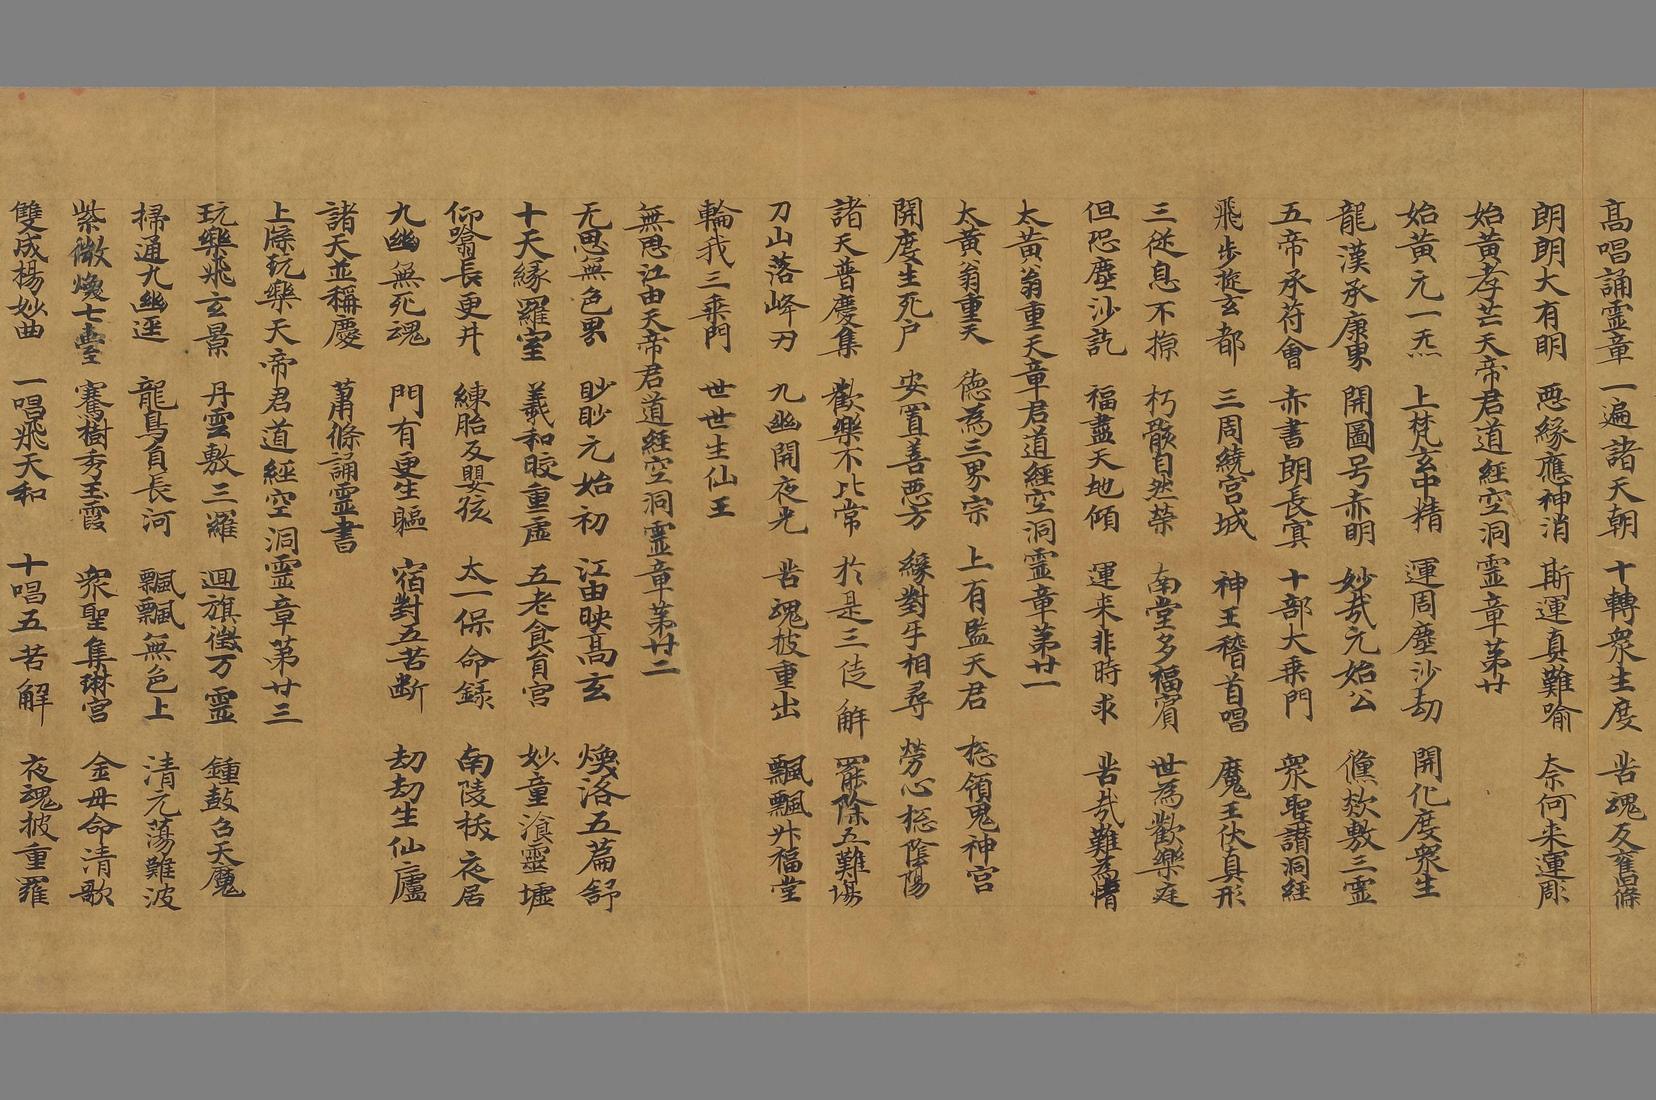 高唱誦霊章 一遍諸天朝 十轉衆生度 苦魂反舊條
朗朗大有明 悪緣應神消 斯運真難喻 奈何来運彫
始黄孝芒天帝君道經空洞霊章第廿
始黄元一炁 上梵玄中精 運周塵沙劫 開化度衆生
龍漢承康東 開圖号赤明 妙哉元始公 儵欻敷三霊
五帝承符會 赤書朗長寘 十部大乗門 衆聖讃洞經
飛歩旋玄都 三周繞宮城 神王稽首唱 魔王伏真形
三従息不掠 朽骸自然榮 南堂多福賓 世為歡樂庭
但恐塵沙訖 福盡天地傾 運来非時求 苦哉難為情
太黄翁重天章君道經空洞霊章第廿一
太黄翁重天 徳為三界宗 上有監天君 惣領鬼神宮
開度生死户 安置善悪方 緣對乎相尋 勞心惣陰陽
諸天普慶集 歡樂不比常 於是三徒解 罷除五難場
刀山落峰刃 九幽開夜光 苦魂披重出 飄飄升福堂
輪我三乗門 世世生仙王
無思江由天帝君道經空洞霊章第廿二
无思無色界 眇眇元始初 江由映髙玄 煥落五篇舒
十天緣羅室 義和皎重虚 五老食育宮 妙童飡靈墟
仰嗡長更井 練胎反嬰孩 太一保命録 南陵拔夜居
九幽無死魂 門有更生軀 宿對五苦断 劫劫生仙廬
諸天並稱慶 蕭條誦霊書
上牒玩樂天帝君道經空洞霊章第廿三
玩樂飛玄景 丹雲敷三羅 迴旗徴万霊 鍾鼓召天魔
掃通九幽逕 龍鳥負長河 飄飄無色上 清元蕩難波
紫微煥七臺 騫樹秀玉霞 衆聖集琳宮 金母命清歌
雙成揚妙曲 一唱飛天和 十唱五苦解 夜魂披重羅